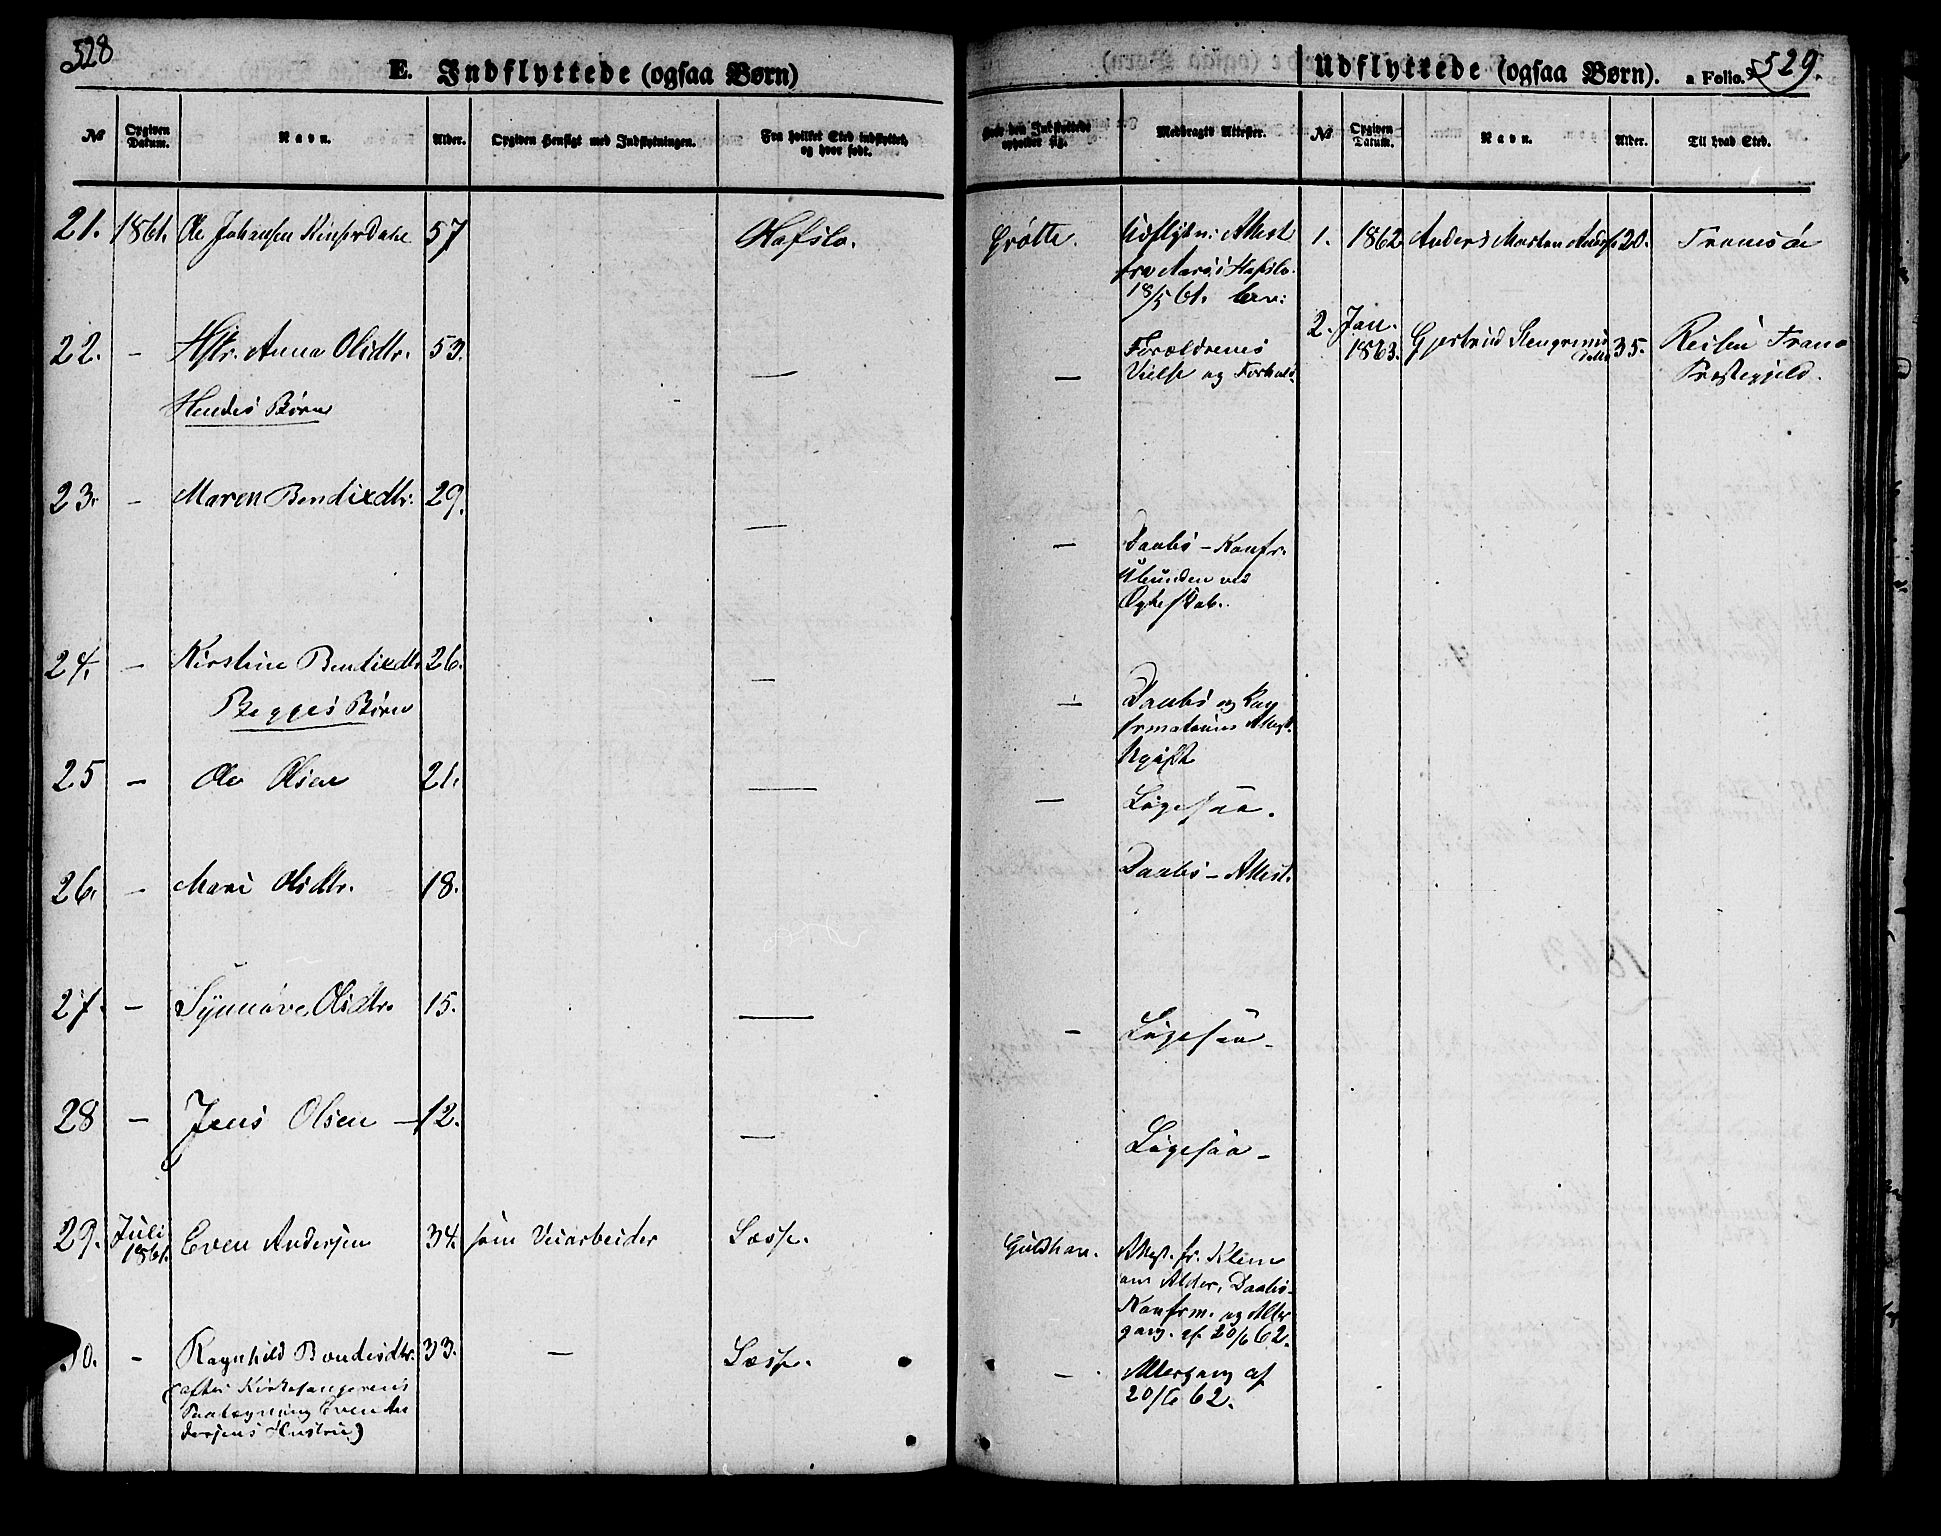 528
E. Indflyttede (ogsaa Børn)
№ Opgiven Datum. Navn. Alder. Opgiven Hensigt med Indflytningen. Fra hvilket Sted indflyttet, og hvor født.
21. 1861. Ole Johansen 57 Hafslo.
22. — Hstr. Anna Olsdtr. 53. —
Hendes Børn
23. — Maren Bendixdtr. 29. —
24. — Kirstine Bendixdtr. 26. —
Begges Børn
25 — Ole Olsen 21. —
26. — Mari Olsdtr. 18.
27. — Synnøve Olsdtr. 15. —
28 — Jens Olsen — 12. —
29. Juli 1861. Even Andersen 34. som Veiarbeider
30. — Ragnhild 33. —
(efter Kirkesangerens
Paategning Even An
dersens Hustru)
Hvor den Indflyttede opholder sig. Medbragte Attester.
Grøtte. Udflytn: Attest
fra i Hafslo.
18/5 61.
— Forældrenes
Vielse og Forhold
— Daabs – Konfr.
ved
Ægteskab.
— Daabs og Kon
firmations Attest.
Ugift
— Ligesaa.
Daabs – Attest.
— Ligesaa –
Ligesaa –
Attest. fr.
om Alder, Daabs-
Konfirm. og Alter
gang. af 20/6 62.
— Altergang af
20/6 62.
Udflyttede (ogsaa Børn). a Folio. 529.
№ Opgiven Datum. Navn. Alder. Til hvad Sted.
1. 1862 Anders Morten 20. Tromsøe
2. Jan. 1863. Gjertrud 35.
Præstegjeld.